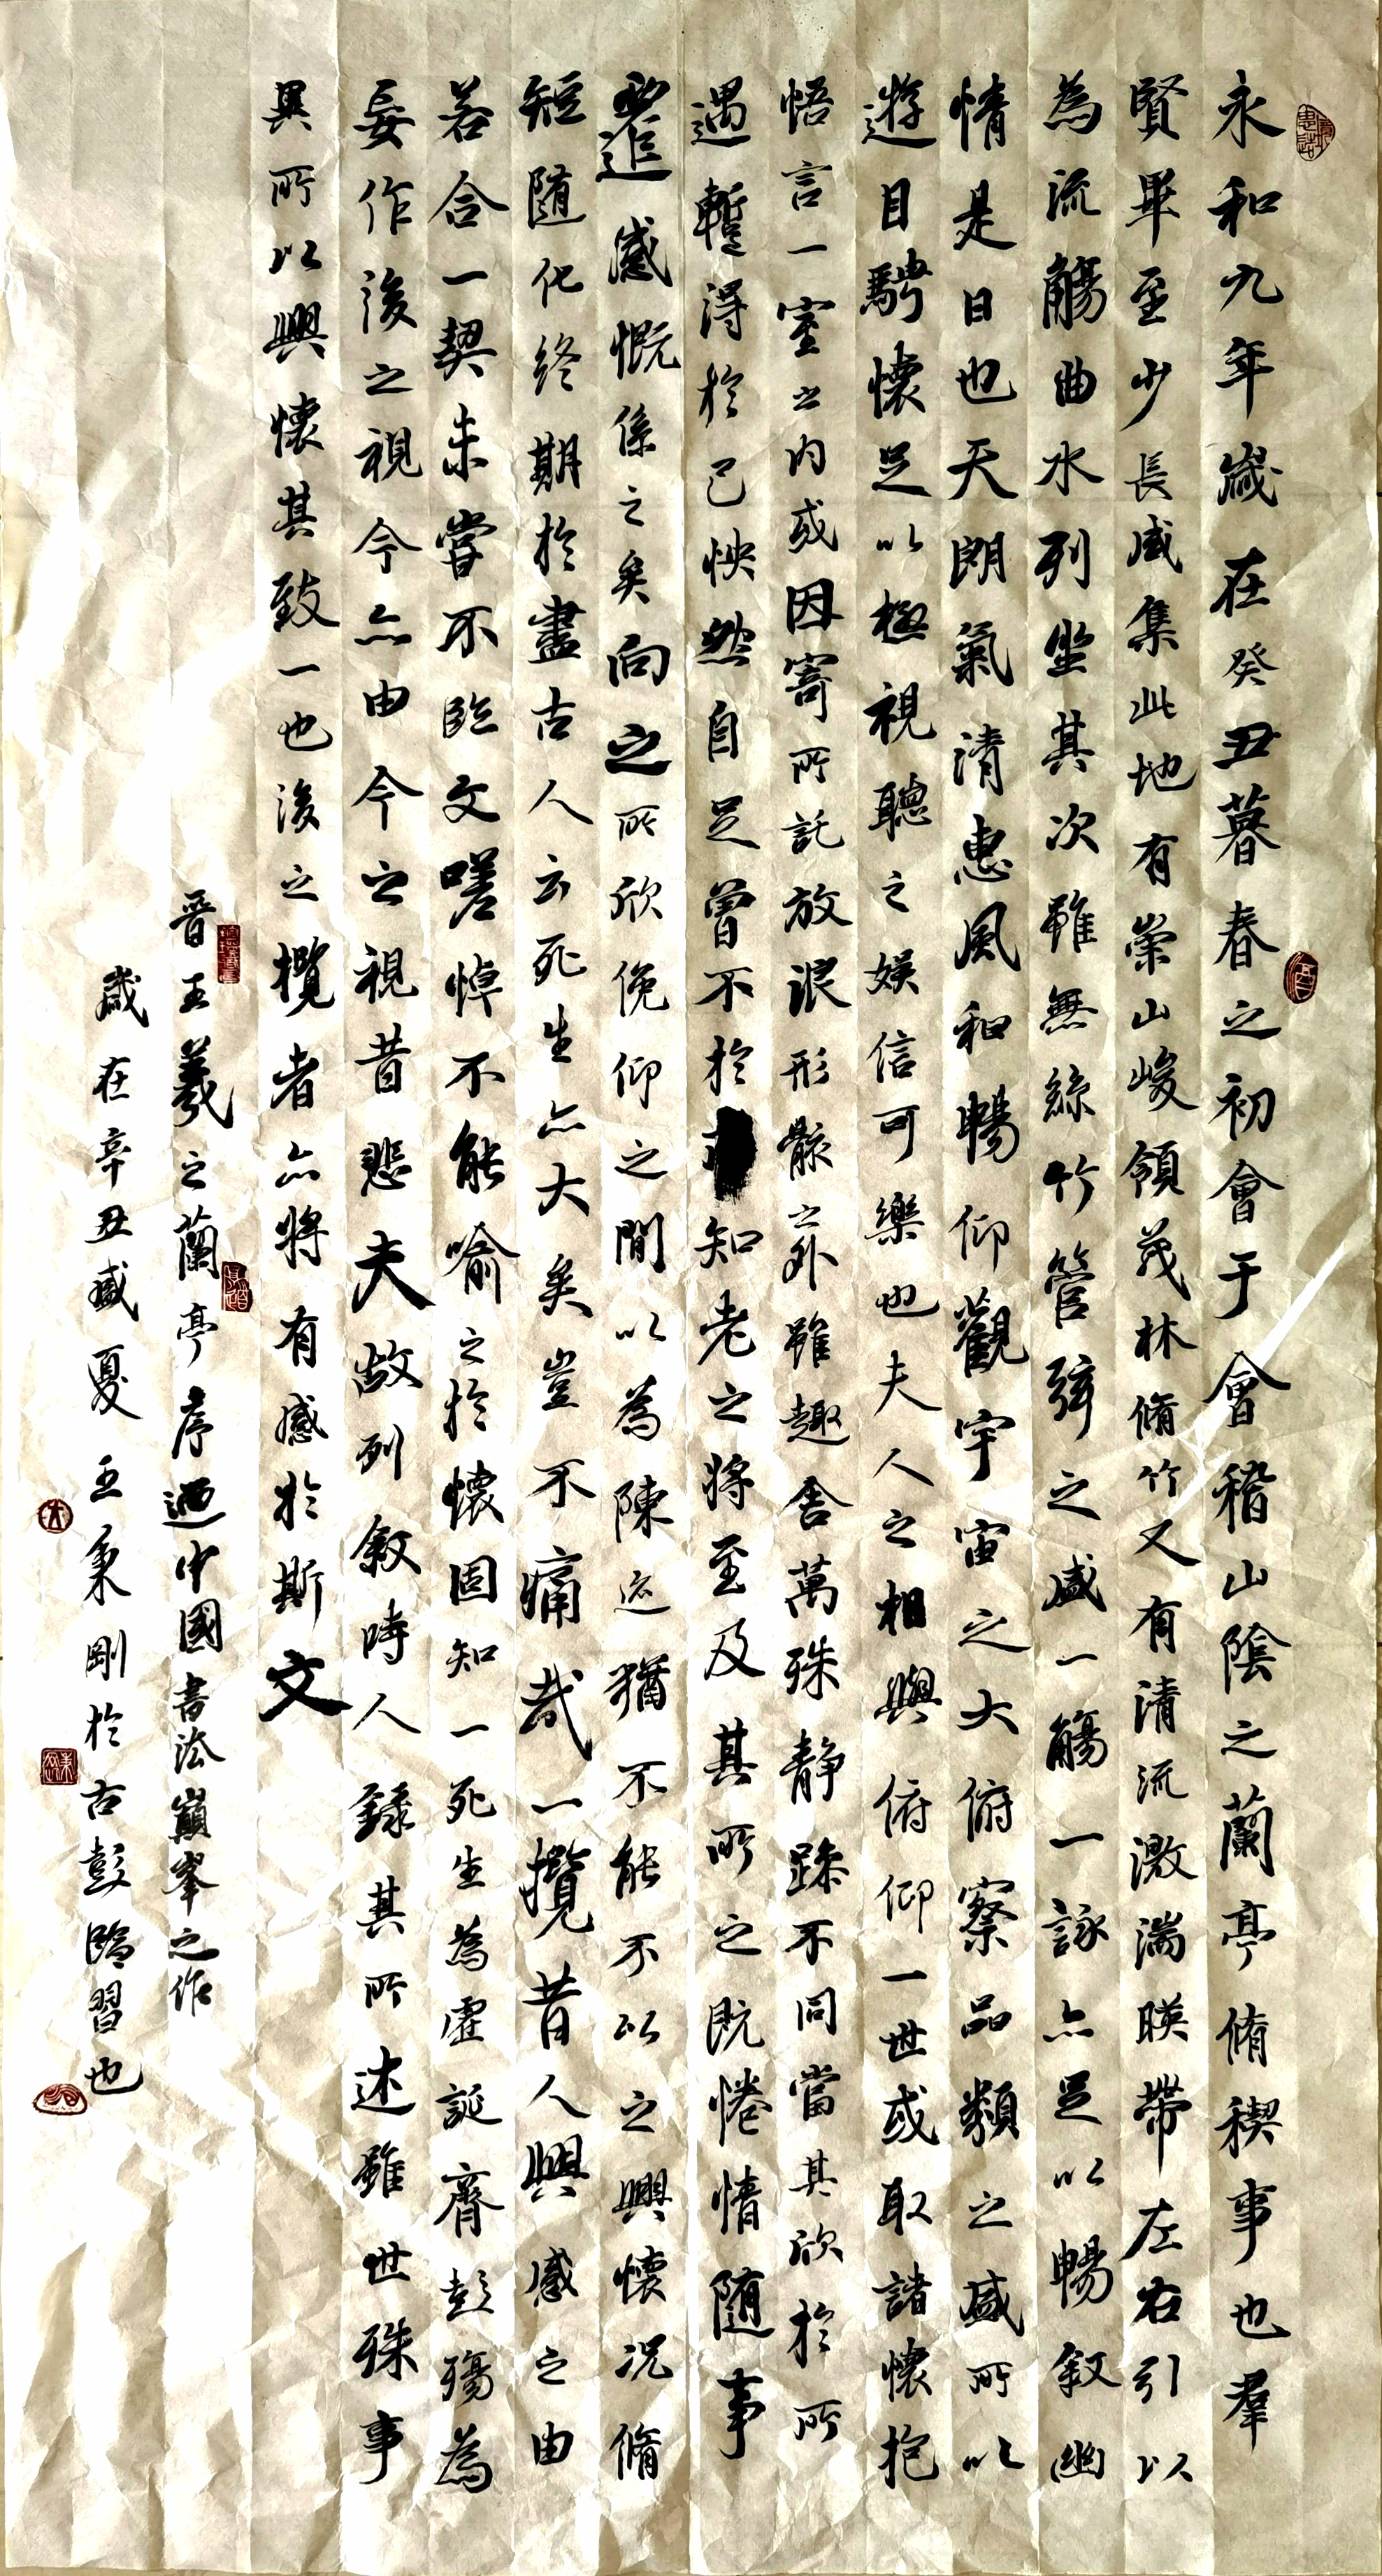 永和九年歲在癸丑暮春之初會于會稽山陰之蘭亭脩稧事也羣
賢畢至少長咸集此地有崇山峻領茂林脩竹又有清流激湍暎帶左右引以
為流觴曲水列坐其次雖無絲竹管弦之盛一觴一詠亦足以暢叙幽
情是日也天朗氣清惠風和暢仰觀宇宙之大俯察品類之盛所以
遊目騁懷足以極視聽之娛信可樂也夫人之相與俯仰一世或取諸懷抱
悟言一室之内或因寄所託放浪形骸之外雖趣舍萬殊静躁不同當其欣於所
遇暫得於己怏然自足曾不於知老之將至及其所之既惓情随事
遷感慨係之矣向之所欣俛仰之間以為陳迹猶不能不以之興懷況脩
短随化終期於盡古人云死生亦大矣豈不痛哉一攬昔人興感之由
若合一契未嘗不臨文嗟悼不能喻之於懷固知一死生為虛誕齊彭殤為
妄作後之視今亦由今之視昔悲夫故列叙時人錄其所述雖世殊事
異所以興懷其致一也後之攬者亦將有感於斯文
晉王羲之蘭亭序迺中國書法巔峯之作
歲在辛丑盛夏王秉剛於古彭臨習也